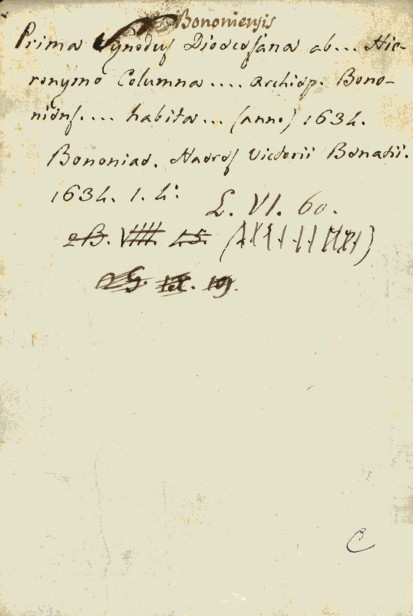 Bononiensis
Prima Synodus Dioecesana ab... Hie-
ronymo Columna .... Archiep. Bono-
niens. ... habita ... (anno) 1634.
Bononiae. Haeres Victorii Benatii.
1634. 1. 4°
L. VI. 60.
C